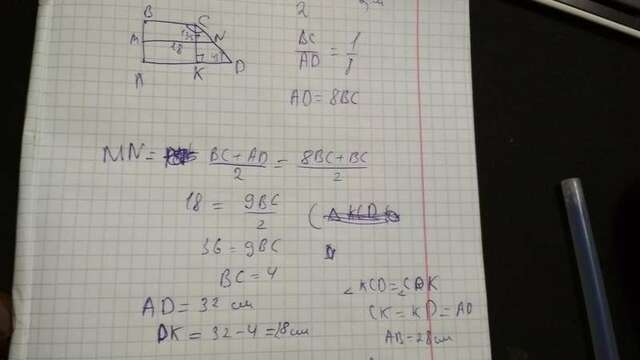 B C
M 18 N
A K D
BC/AD = 1/8
AD = 8BC
MN = (BC + AD)/2 = (8BC + BC)/2
18 = 9BC/2
36 = 9BC
BC = 4
AD = 32 см
DK = 32 - 4 = 28 см
∠KCD = ∠CDK
CK = KD = AD
AB = 28 см